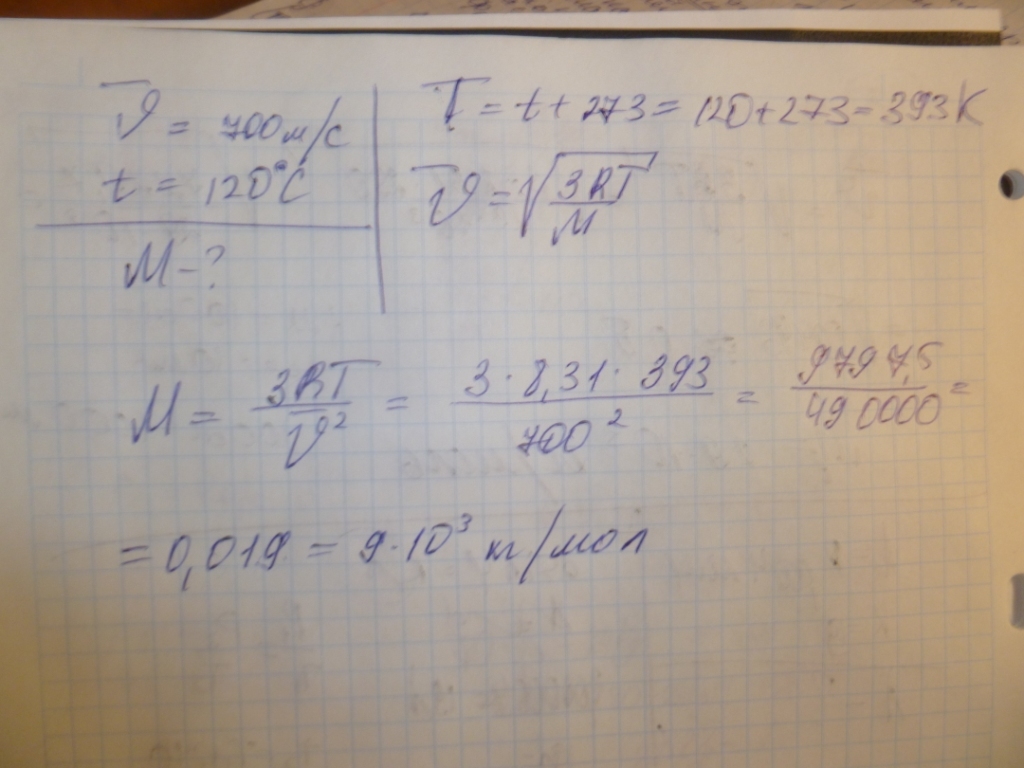 ῡ = 700 м/с
t = 120°C
M - ?
T = t + 273 = 120 + 273 = 393 K
ῡ = √(3RT/M)
M = 3RT/ῡ² = 3 · 8,31 · 393/700² = 9797,5/490000 =
= 0,019 = 9 · 10³ кг/мол